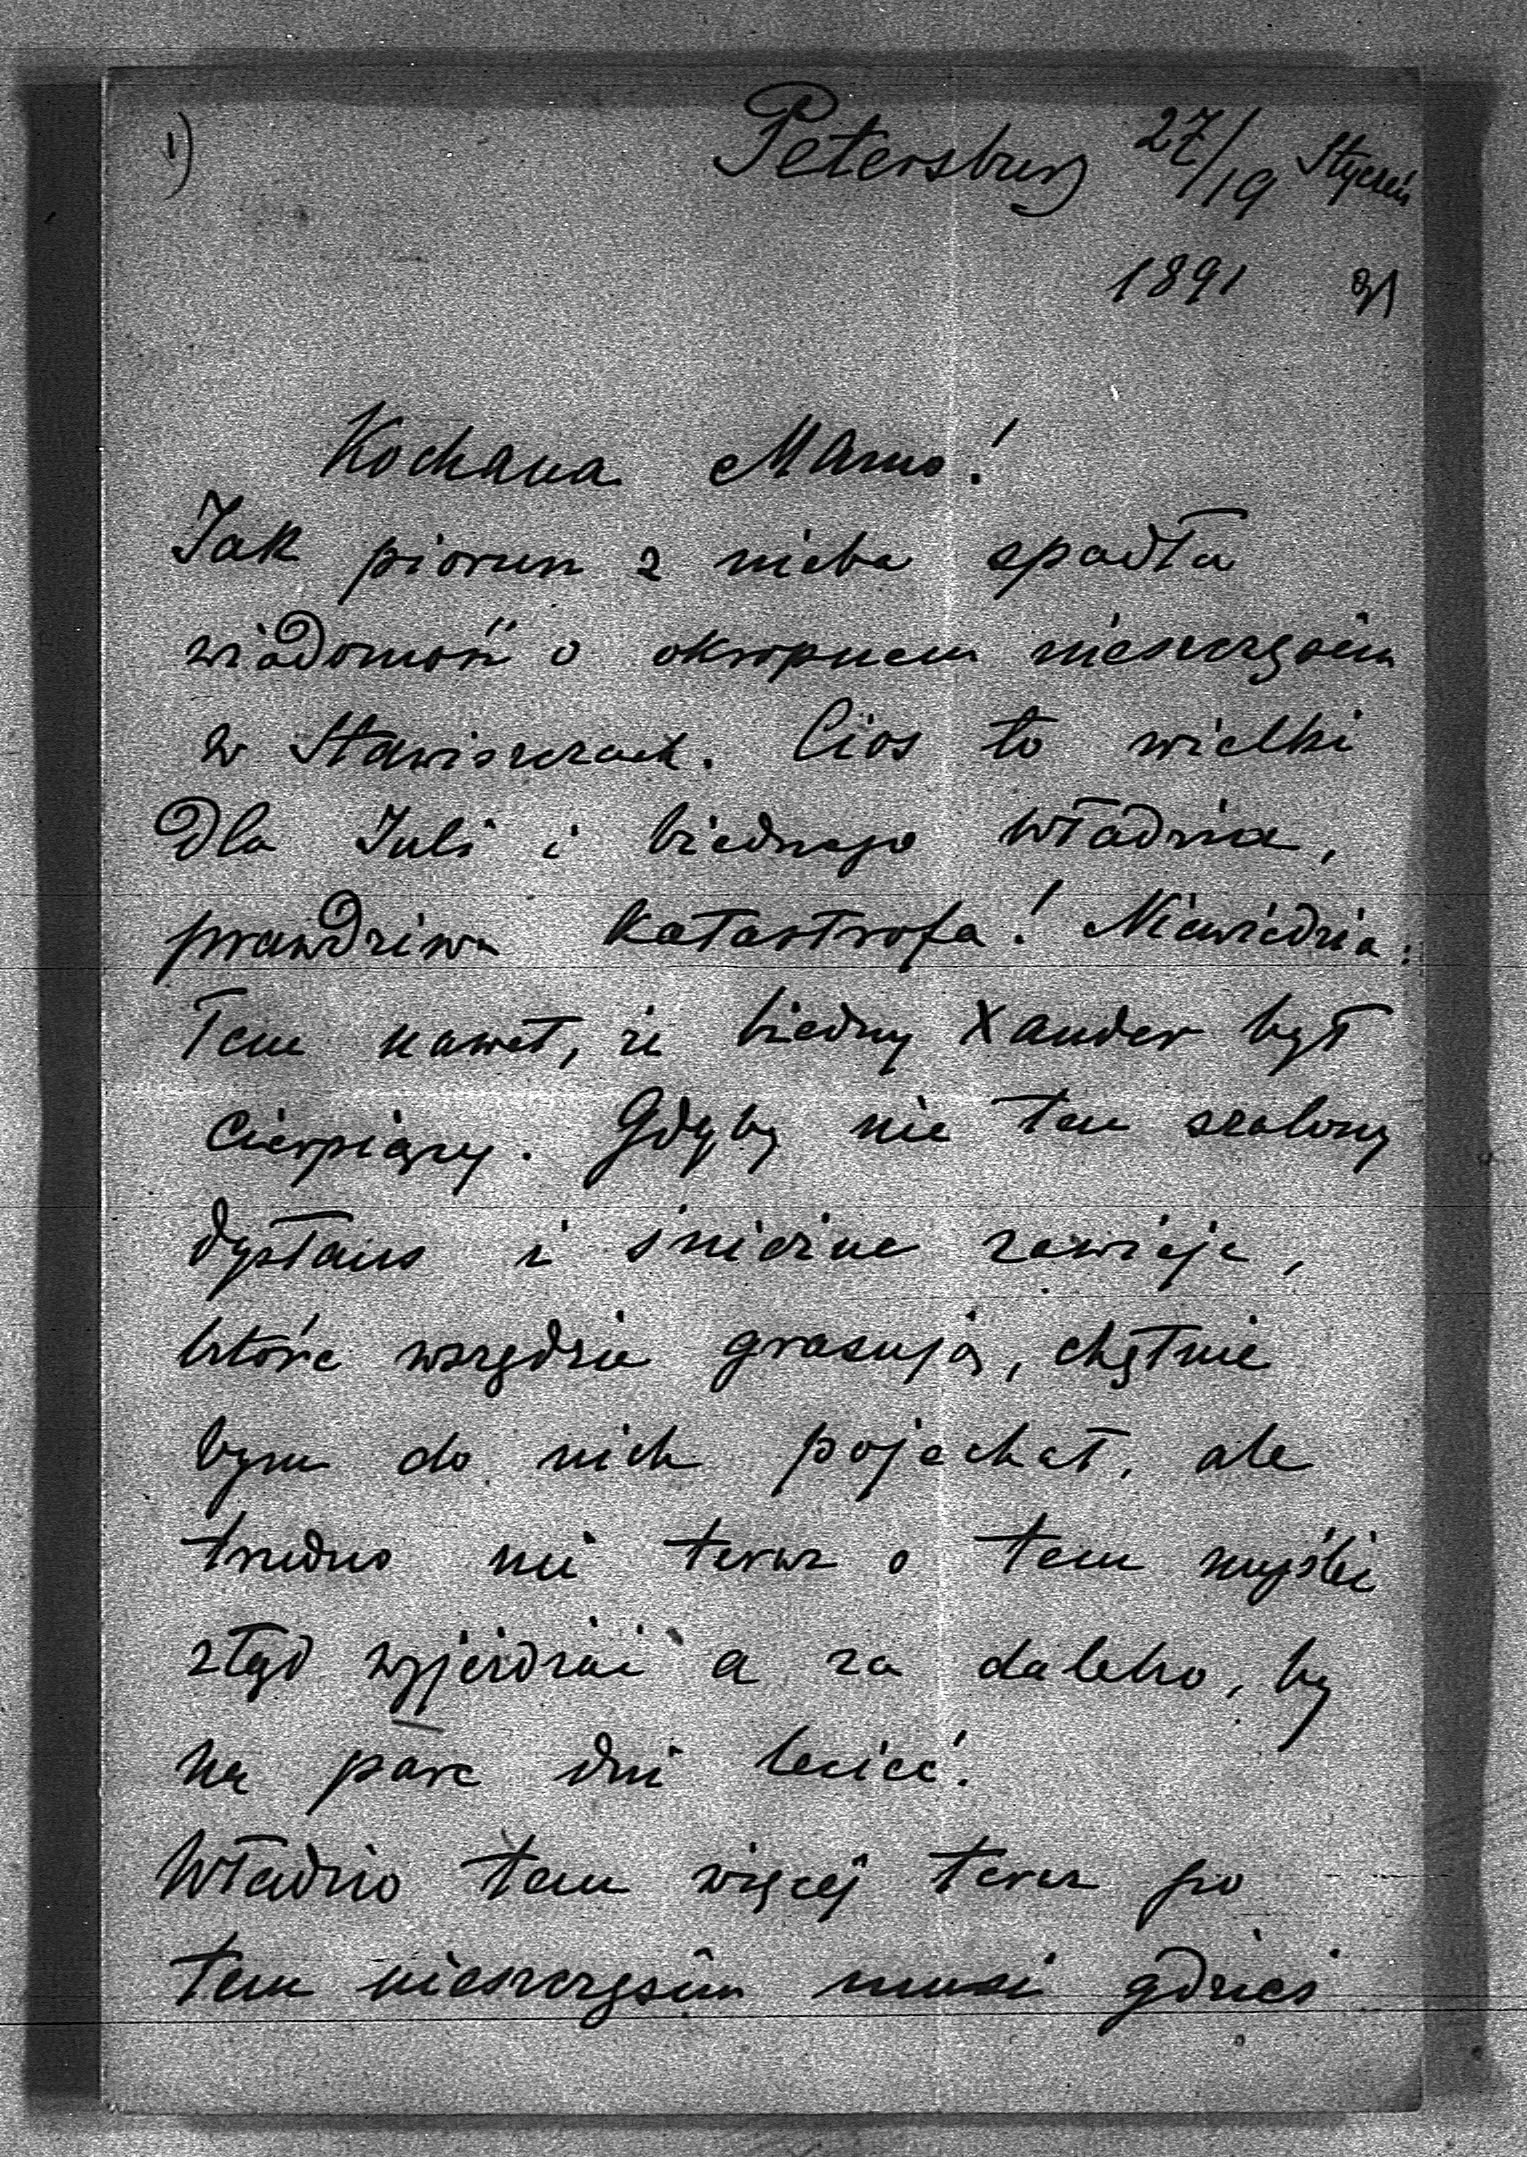 1) Petersburg 27/19 Styczeń
1891 91
Kochana Mamo!
Jak piorun z nieba spadła
wiadomość o okropnem nieszczęściu
w Stawiszczach. Cios to wielki
dla Juli i biednego Władzia,
prawdziwa katastrofa! Niewiedzia:
łem nawet, że biedny Xander był
cierpiący. Gdyby nie ten szalony
dystans i śnieżne zawieje,
które wszędzie grasują, chętnie
bym do nich pojechał, ale
trudno mi teraz o tem myśleć
ztąd wyjeżdżać a za daleko, by
na parę dni lecieć.
Władzio tem więcej teraz po
tem nieszczęściu musi gdzieś